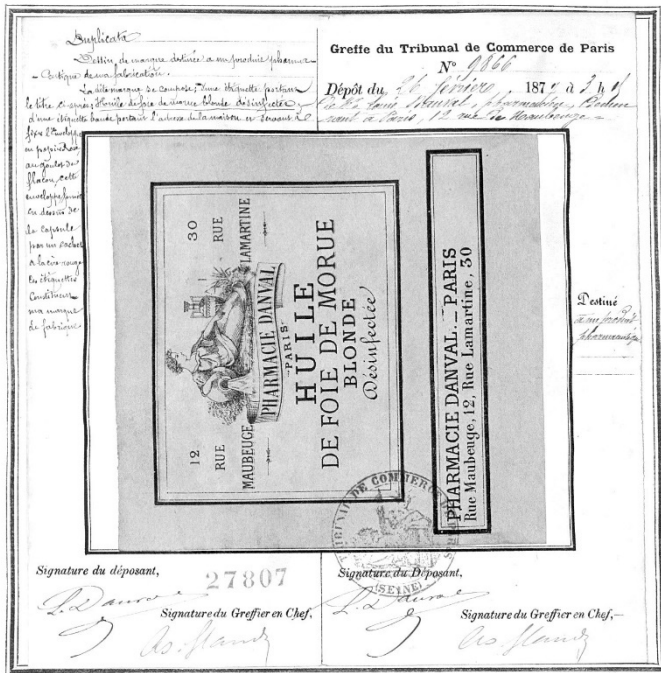 Duplicata
Dessin de marque destinée à un produit pharma-
-ceutique de ma fabrication.
La dite marque se compose, d'une étiquette portant
le titre ci-après Huile de foie de morue blonde désinfectée,
d'une étiquette bande portant l'adresse de la maison et servant à
flacon, cette
enveloppe
en dessus de
la capsule
par un cachet
à la cire rouge
Ces étiquettes
Constituent
ma marque
de fabrique
Greffe du Tribunal de Commerce de Paris
N° 9866
Dépôt du 26 février 187 à 2 h
Danval, pharmacien,
à Paris, 12 rue de Maubeuge
12 RUE MAUBEUGE
30 RUE LAMARTINE
PHARMACIE DANVAL
PARIS
HUILE
DE FOIE DE MORUE
BLONDE
Désinfectée
PHARMACIE DANVAL._PARIS
Rue Maubeuge, 12, Rue Lamartine, 30
Destiné
à un produit
pharmaceutique
TRIBUNAL DE COMMERCE
(SEINE)
Signature du déposant,
27807
L. Danval
Signature du Greffier en Chef,
Signature du Déposant,
L. Danval
Signature du Greffier en Chef,